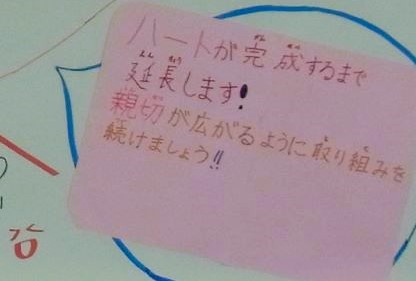 ハートが完成するまで
延長します!
親切が広がるように取り組みを
続けましょう!!